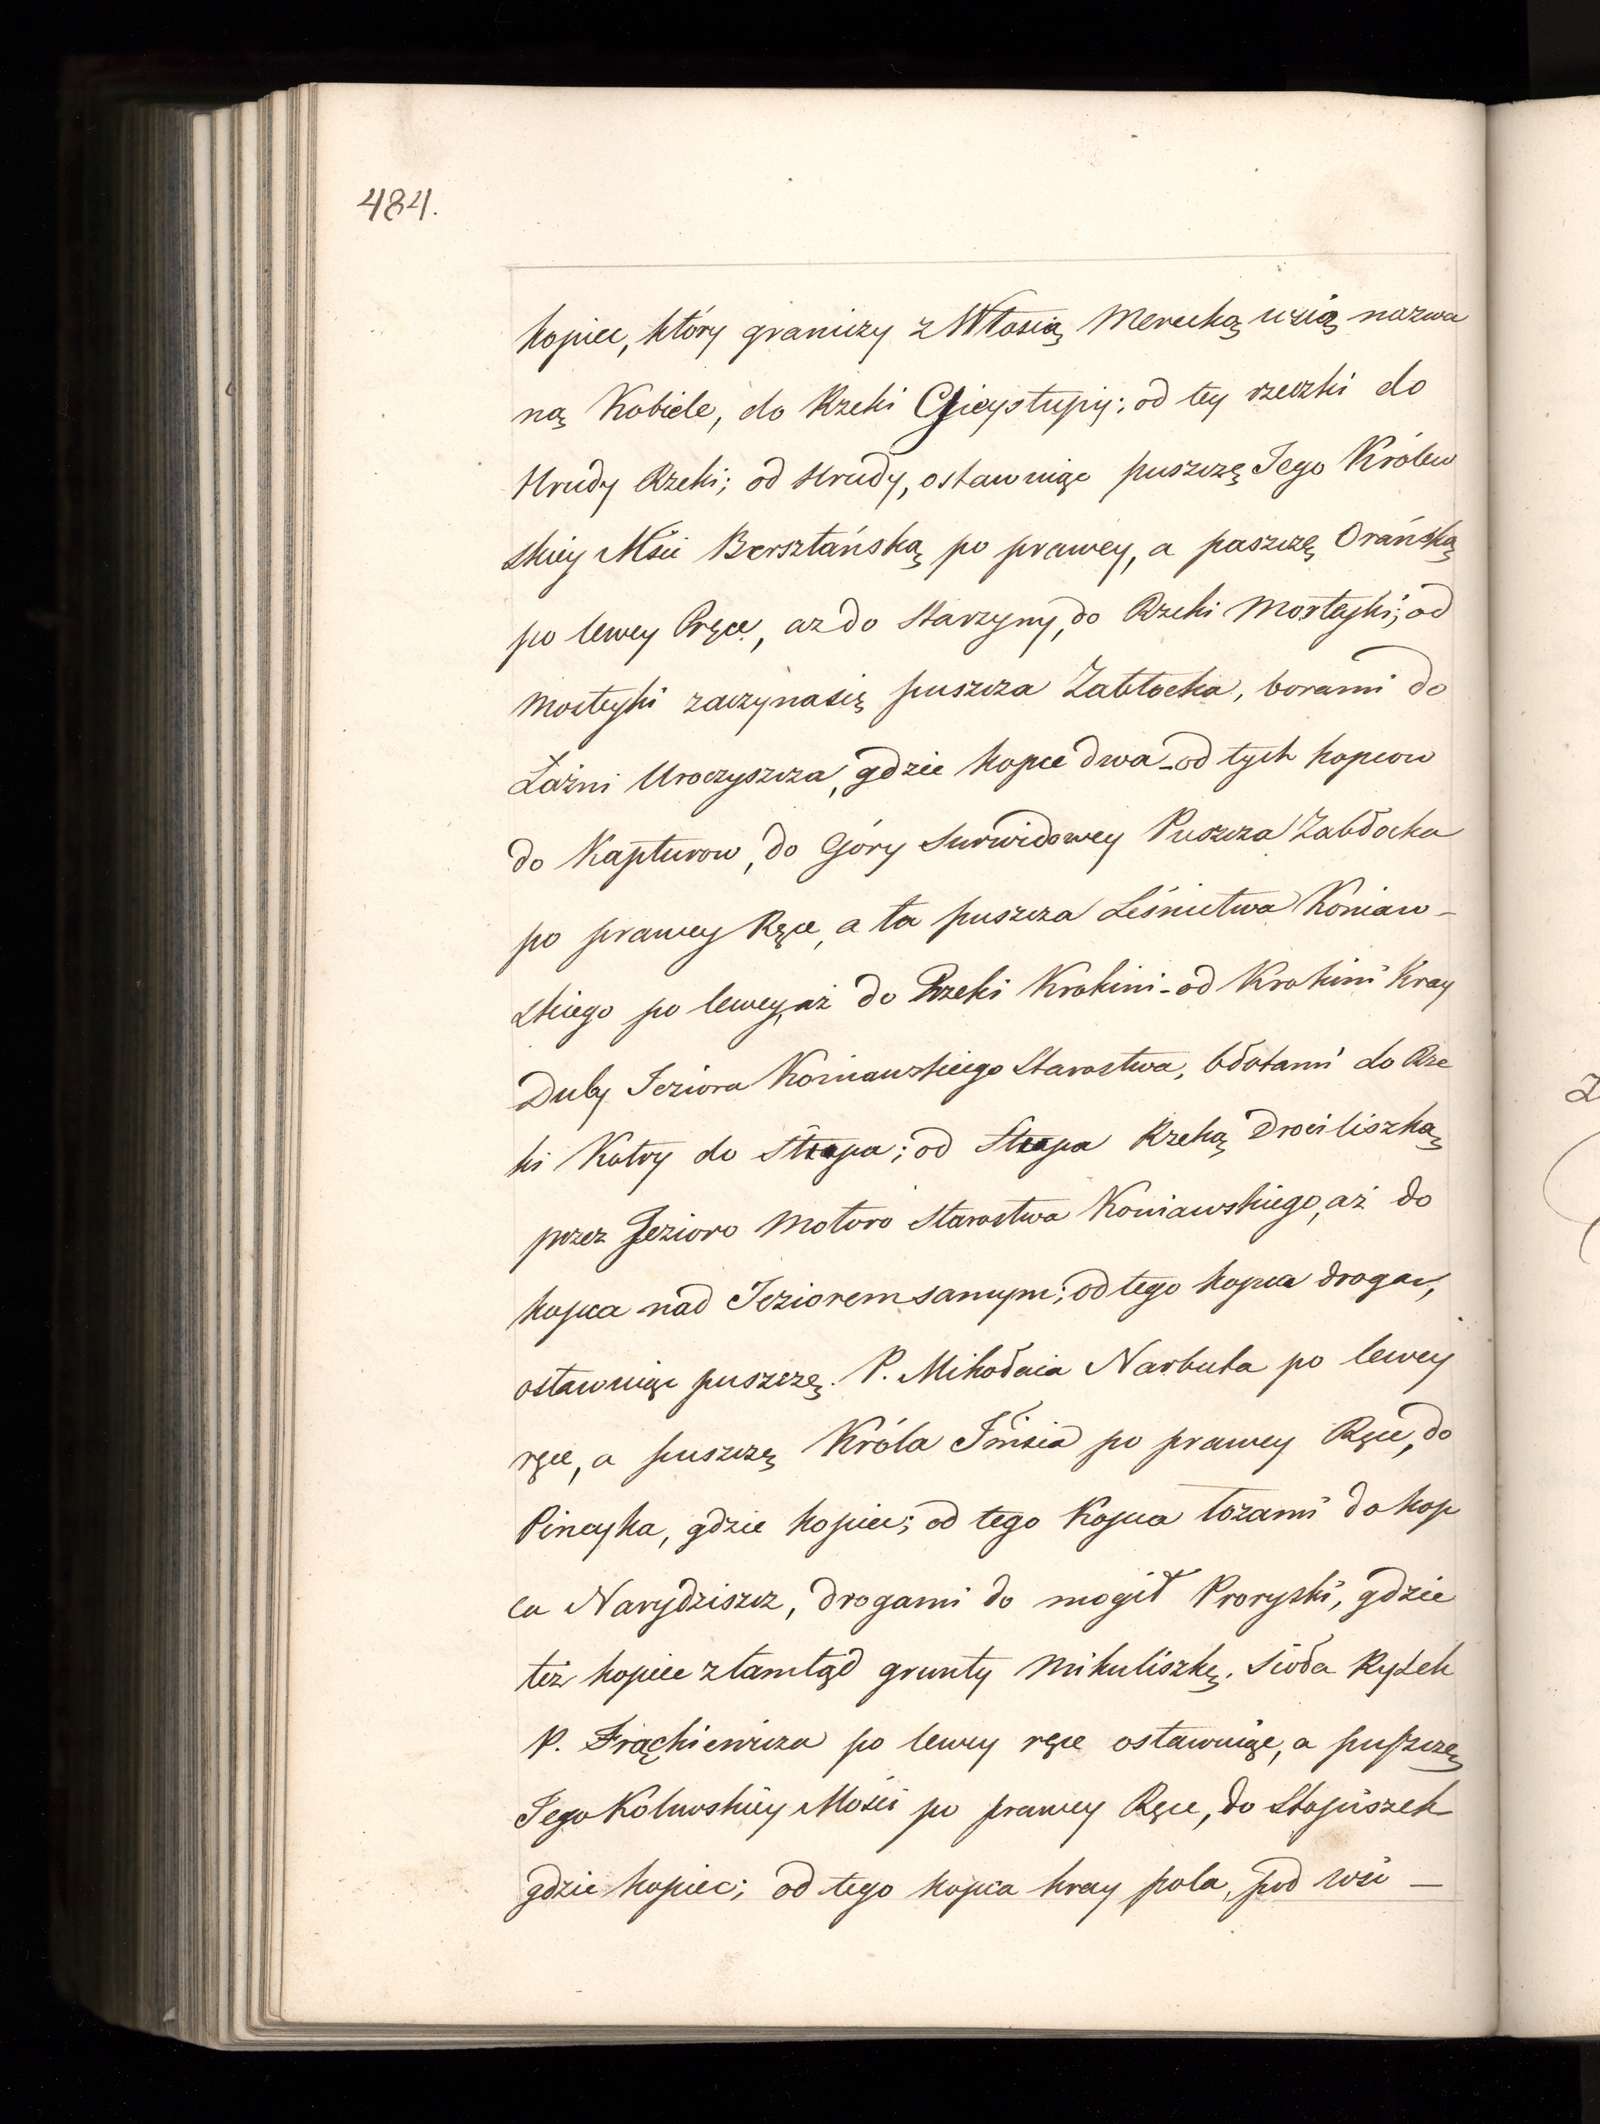 484.
kopiec, który graniczy z Włosią Merecką uzią nazwa
ną Kobiele, do Rzeki Gieystupiy; od tey rzeczki do
Hrudy Rzeki; od Hrudy, ostawuiąc puszczę Jego Królew
skiey Mści Bersztańską po prawey, a paszczę Orańską
po lewey Ręce, az do Starzyny, do Rzeki Morteyki; od
Morteyki zaczynasię puszcza Zabłocka, borami do
Łaźni Uroczyszcza, gdzie kopce dwa - od tych kopcow
do Kapturow, do Góry Surwidowey Puszcza Zabłocka
po prawey Ręce, a ta puszcza Leśnictwa Koniaw-
skiego po lewey, aż do Rzeki Krokini - od Krokini Kray
Duby Jeziora Koniawskiego Starostwa, błotami do Rze
ki Kotry do Stzapa; od Stzapa Rzeką Drociliszką
przez Jezioro Motoro Starostwa Koniawskiego, aż do
kopca nad Jeziorem samym; od tego kopca drogą,
ostawuiąc puszczę P. Mikołaia Narbuta po lewey
ręce, a puszczę Króla Jmścia po prawey Ręce, do
Pineyka, gdzie kopiec; od tego Kopca łozami do kop
ca Narydziszcz, drogami do mogił Proryski, gdzie
też kopiec ztamtąd grunty Mikuliszkę, Sioła Ryżek
P. Frąckiewicza po lewey ręce ostawuiąc, a puszczę
Jego Kolewskiey Mości po prawey Ręce, do Stopiszek
gdzie kopiec; od tego kopca kray pola, pod wsi -